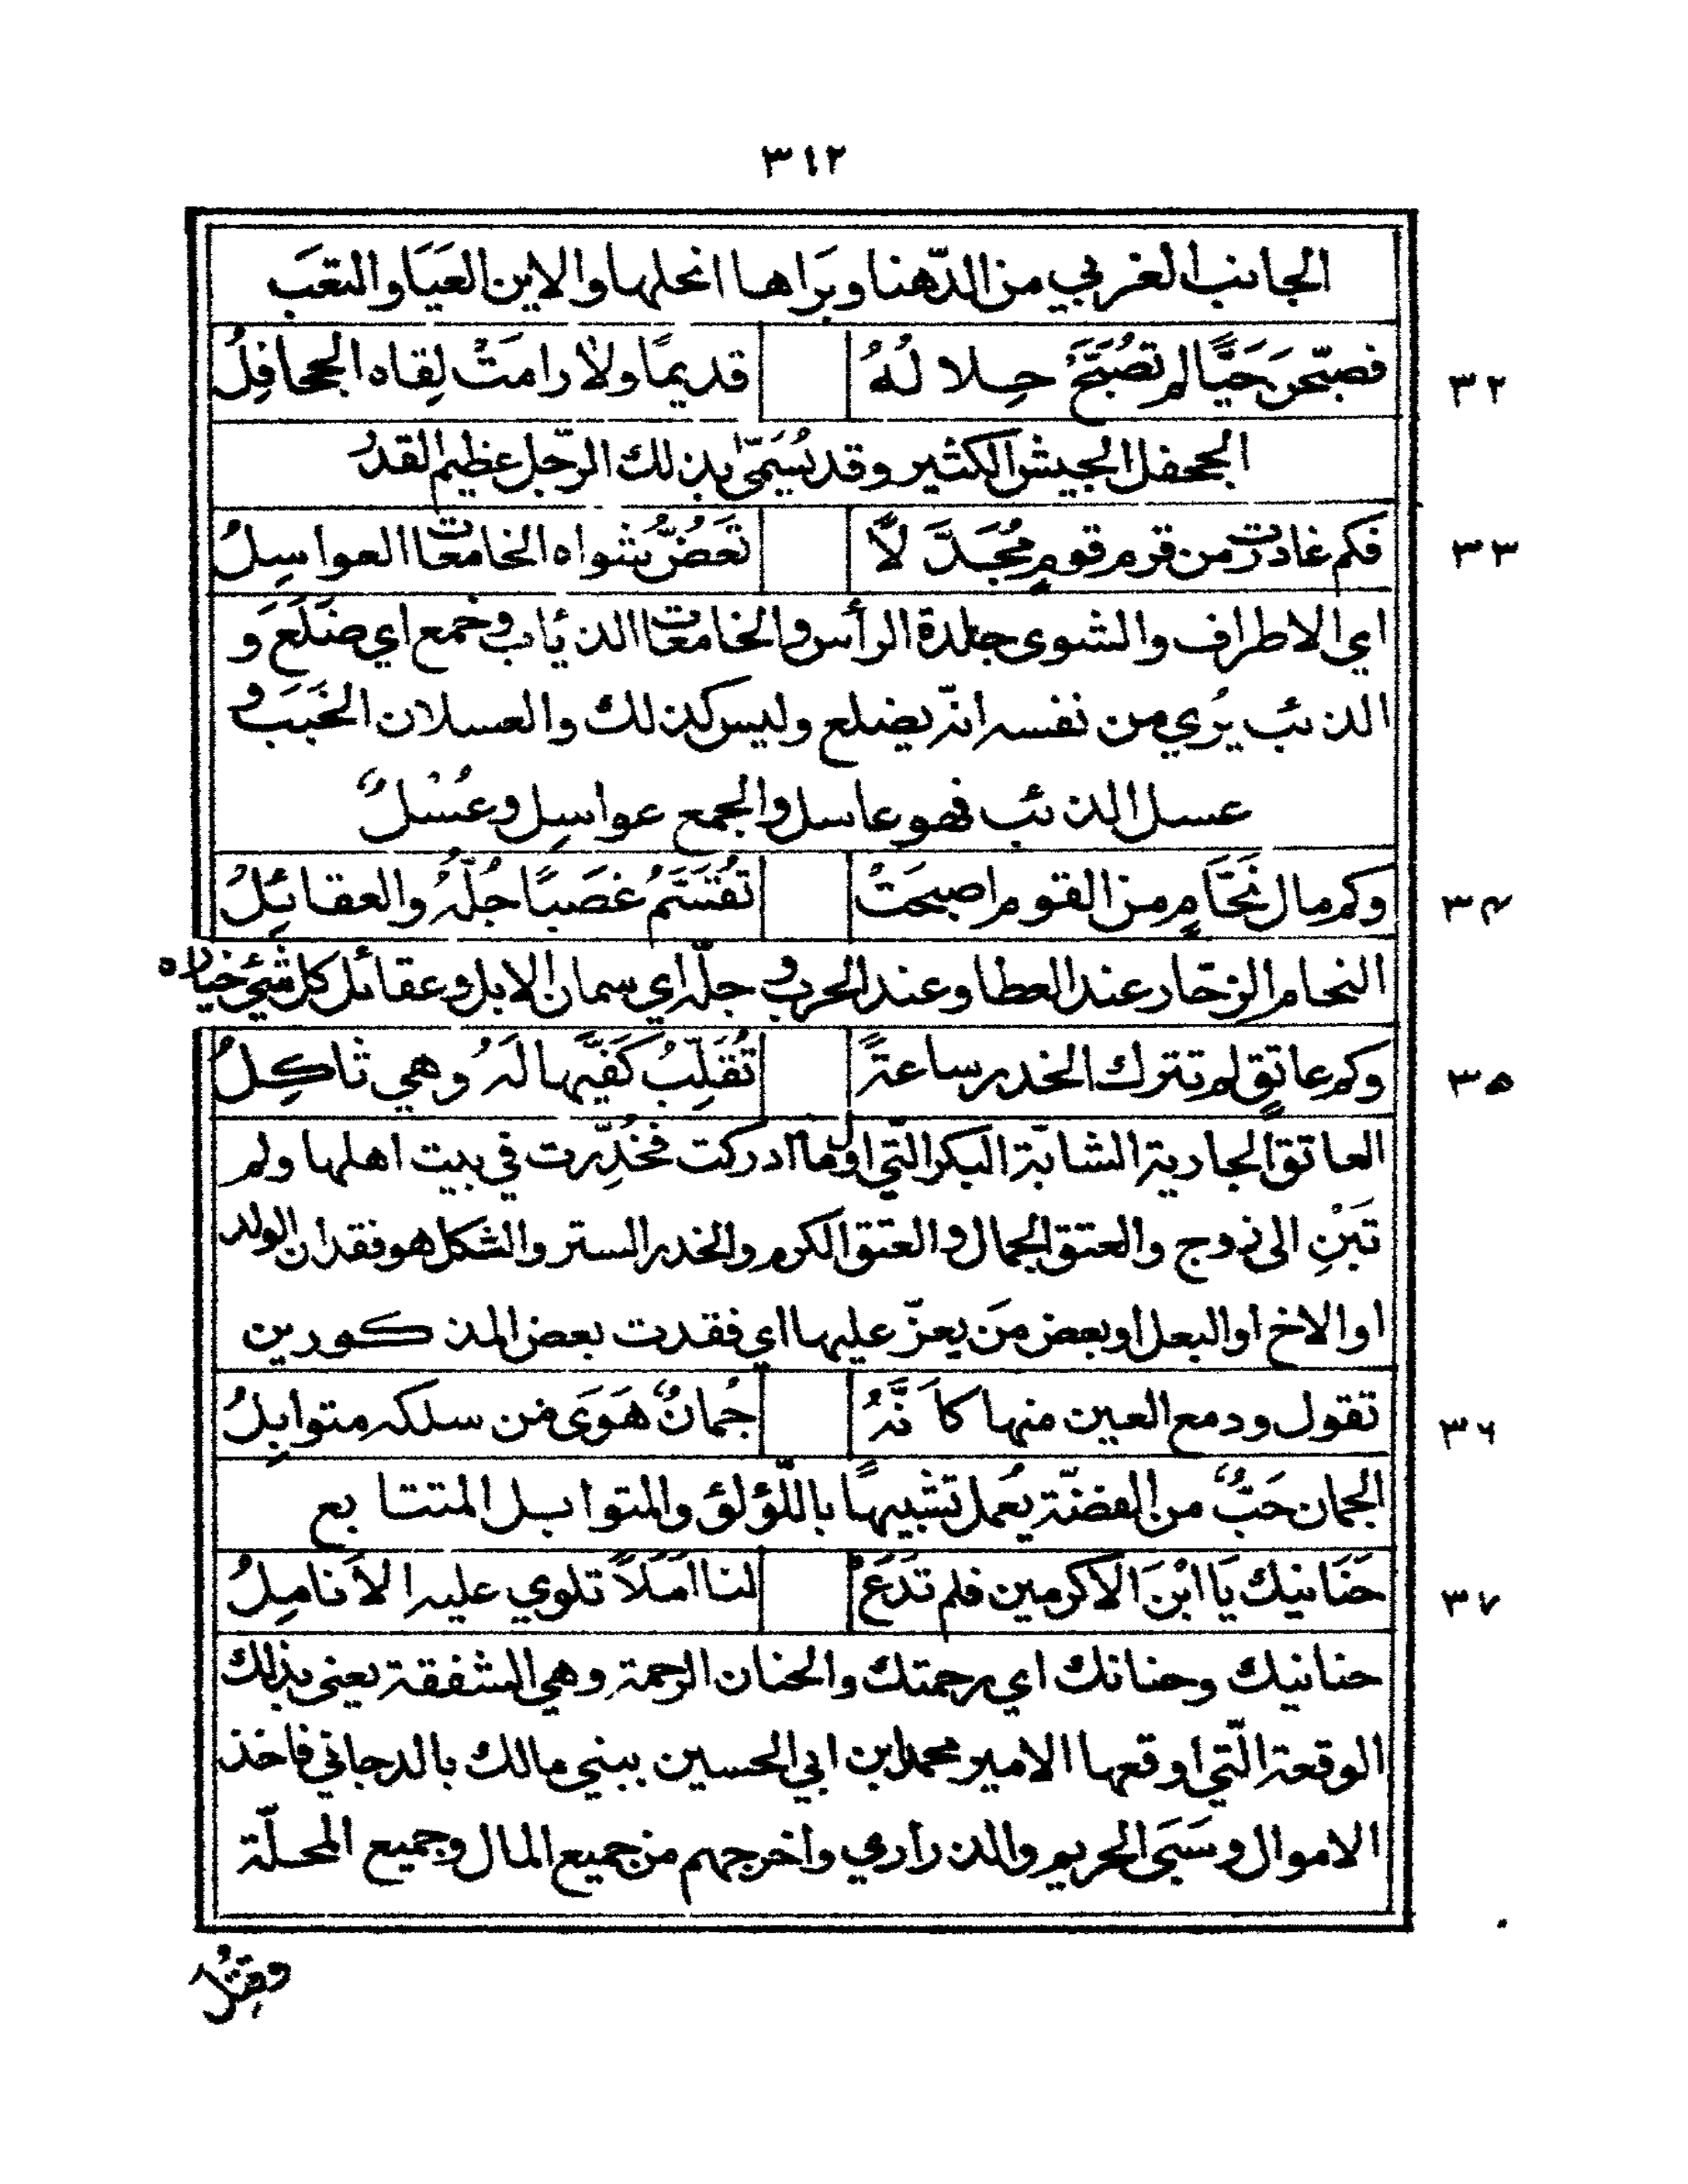 ٣١٢
الجانب الغربي من الدّهنا وبَراها انحلها والاين العيَا والتعَب
٣٢ فصبّحن حَيًّا لم تُصَبَّحْ حِلالُهُ قديمًا ولا رامَتْ لِقاه الجحافِلُ
الجحفل الجيش الكثير وقد يُسَمّىٰ بذلك الرّجل عظيم القدرُ
٣٣ فكم غادرت من قرم قومٍ مُجَدَّلاً تَعَضُّ بشواه الخامعات العواسِلُ
اي الاطراف والشوى جلدة الرأس والخامعات الذئاب وخمع اي ضَلَعَ و
الذئب يُري من نفسه انّه يضلع وليس كذلك والعسلان الخَبَبُ و
عسل الذئب فهو عاسل والجمع عواسِل وعُسْلٌ
٣٤ وكم مال نَحّامٍ من القوم اصبحَتْ تُقَسَّمُ غَصَبًا جُلّهُ والعقائِلُ
النحام الزحّار عند العطا وعند الحرب و جلّه اي سمان الابل وعقائل كل شيٍ خياره
٣٥ وكم عاتقٍ لم تترك الخدر ساعةً تُقلِّبُ كَفَّيها لَهُ وهي ثاكِلُ
العاتق الجارية الشابّة البكر الّتي اول ما ادركت فخُدِّرت في بيت اهلها ولم
تَبْنِ الى زوج والعتق الجمال والعتق الكرم والخدر الستر والثكل هو فقدان الولد
او الاخ او البعل او بعض مَن يعزّ عليها اي فقدت بعض المذكورين
٣٦ تقول ودمع العين منها كاَنَّهُ جُمانٌ هَوَى من سلكه متوابِلُ
الجمان حَبٌّ من الفضّة يُعمل تشبيهًا باللّؤلؤ والمتوابل المتتابع
٣٧ حَنَانيك يَا ابْنَ الاَكرمين فلم تَدَعْ لنا اَمَلاً تلوي عليه الاَنامِلُ
حنانيك وحنانك اي رحمتك والحنان الرحمة وهي الشفقة يعني بذلك
الوقعة الّتي اوقعها الامير محمد ابن ابي الحسين ببني مالك بالدجاني فاخذ
الاموال وسَبَى الحريم والذراري واخرجهم من جميع المال وجميع المحلّة
وقتُل